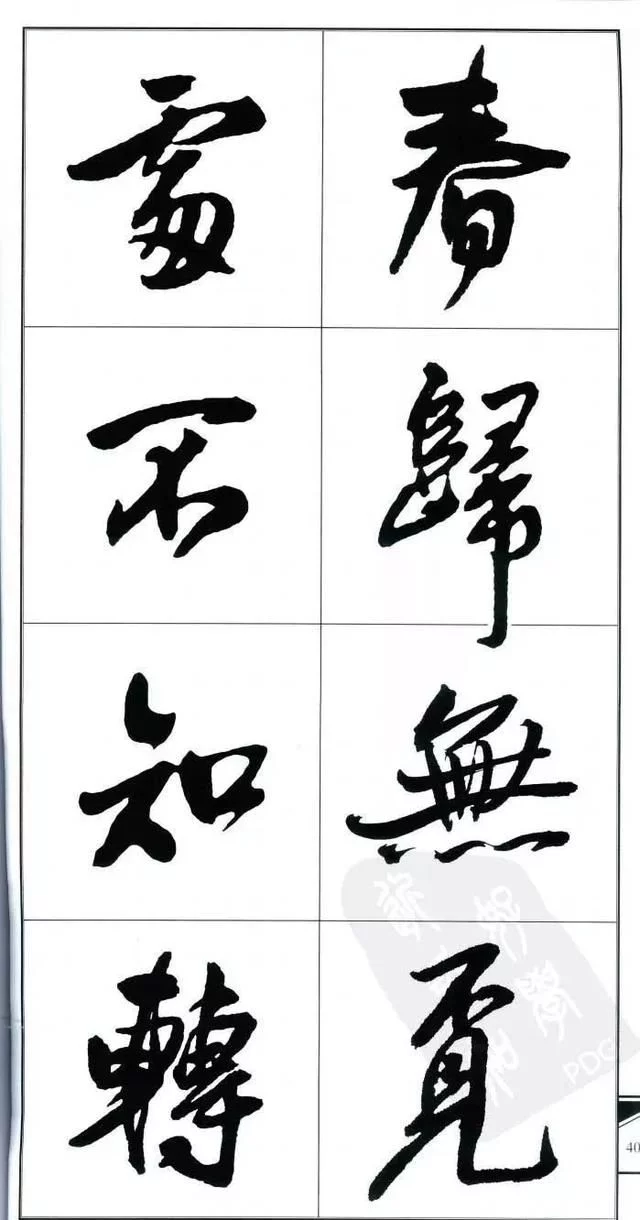 春歸無覔
處不知轉
PDG
40